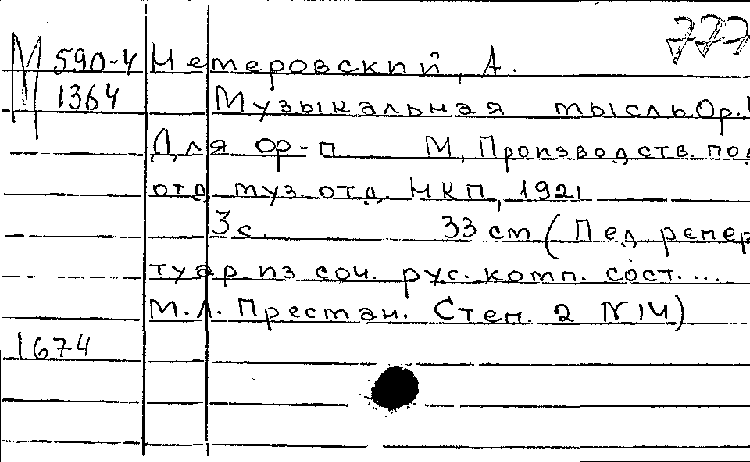 777
М 590-4 Немеровский, А.
1364 Музыкальная мысль. Ор.
Для ф-п М, Производств. под
отд муз. отд. НКП, 1921
3с. 33 см (Пед репер
туар из соч. рус. комп. сост. ...
М.Л. Престман. Степ. 2 N 14)
1674